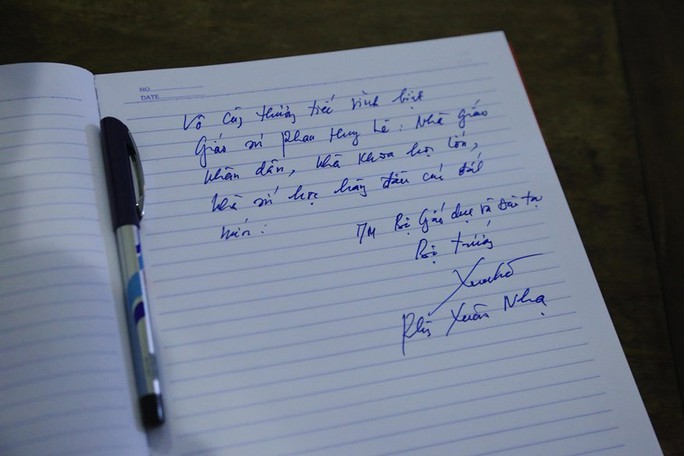 NO.
DATE
Vô cùng thương tiếc vĩnh biệt
Giáo sư Phan Huy Lê: Nhà giáo
nhân dân, nhà khoa học lớn,
nhà sử học hàng đầu của đất
nước.
T/M Bộ Giáo dục và Đào tạo
Bộ trưởng
Phùng Xuân Nhạ